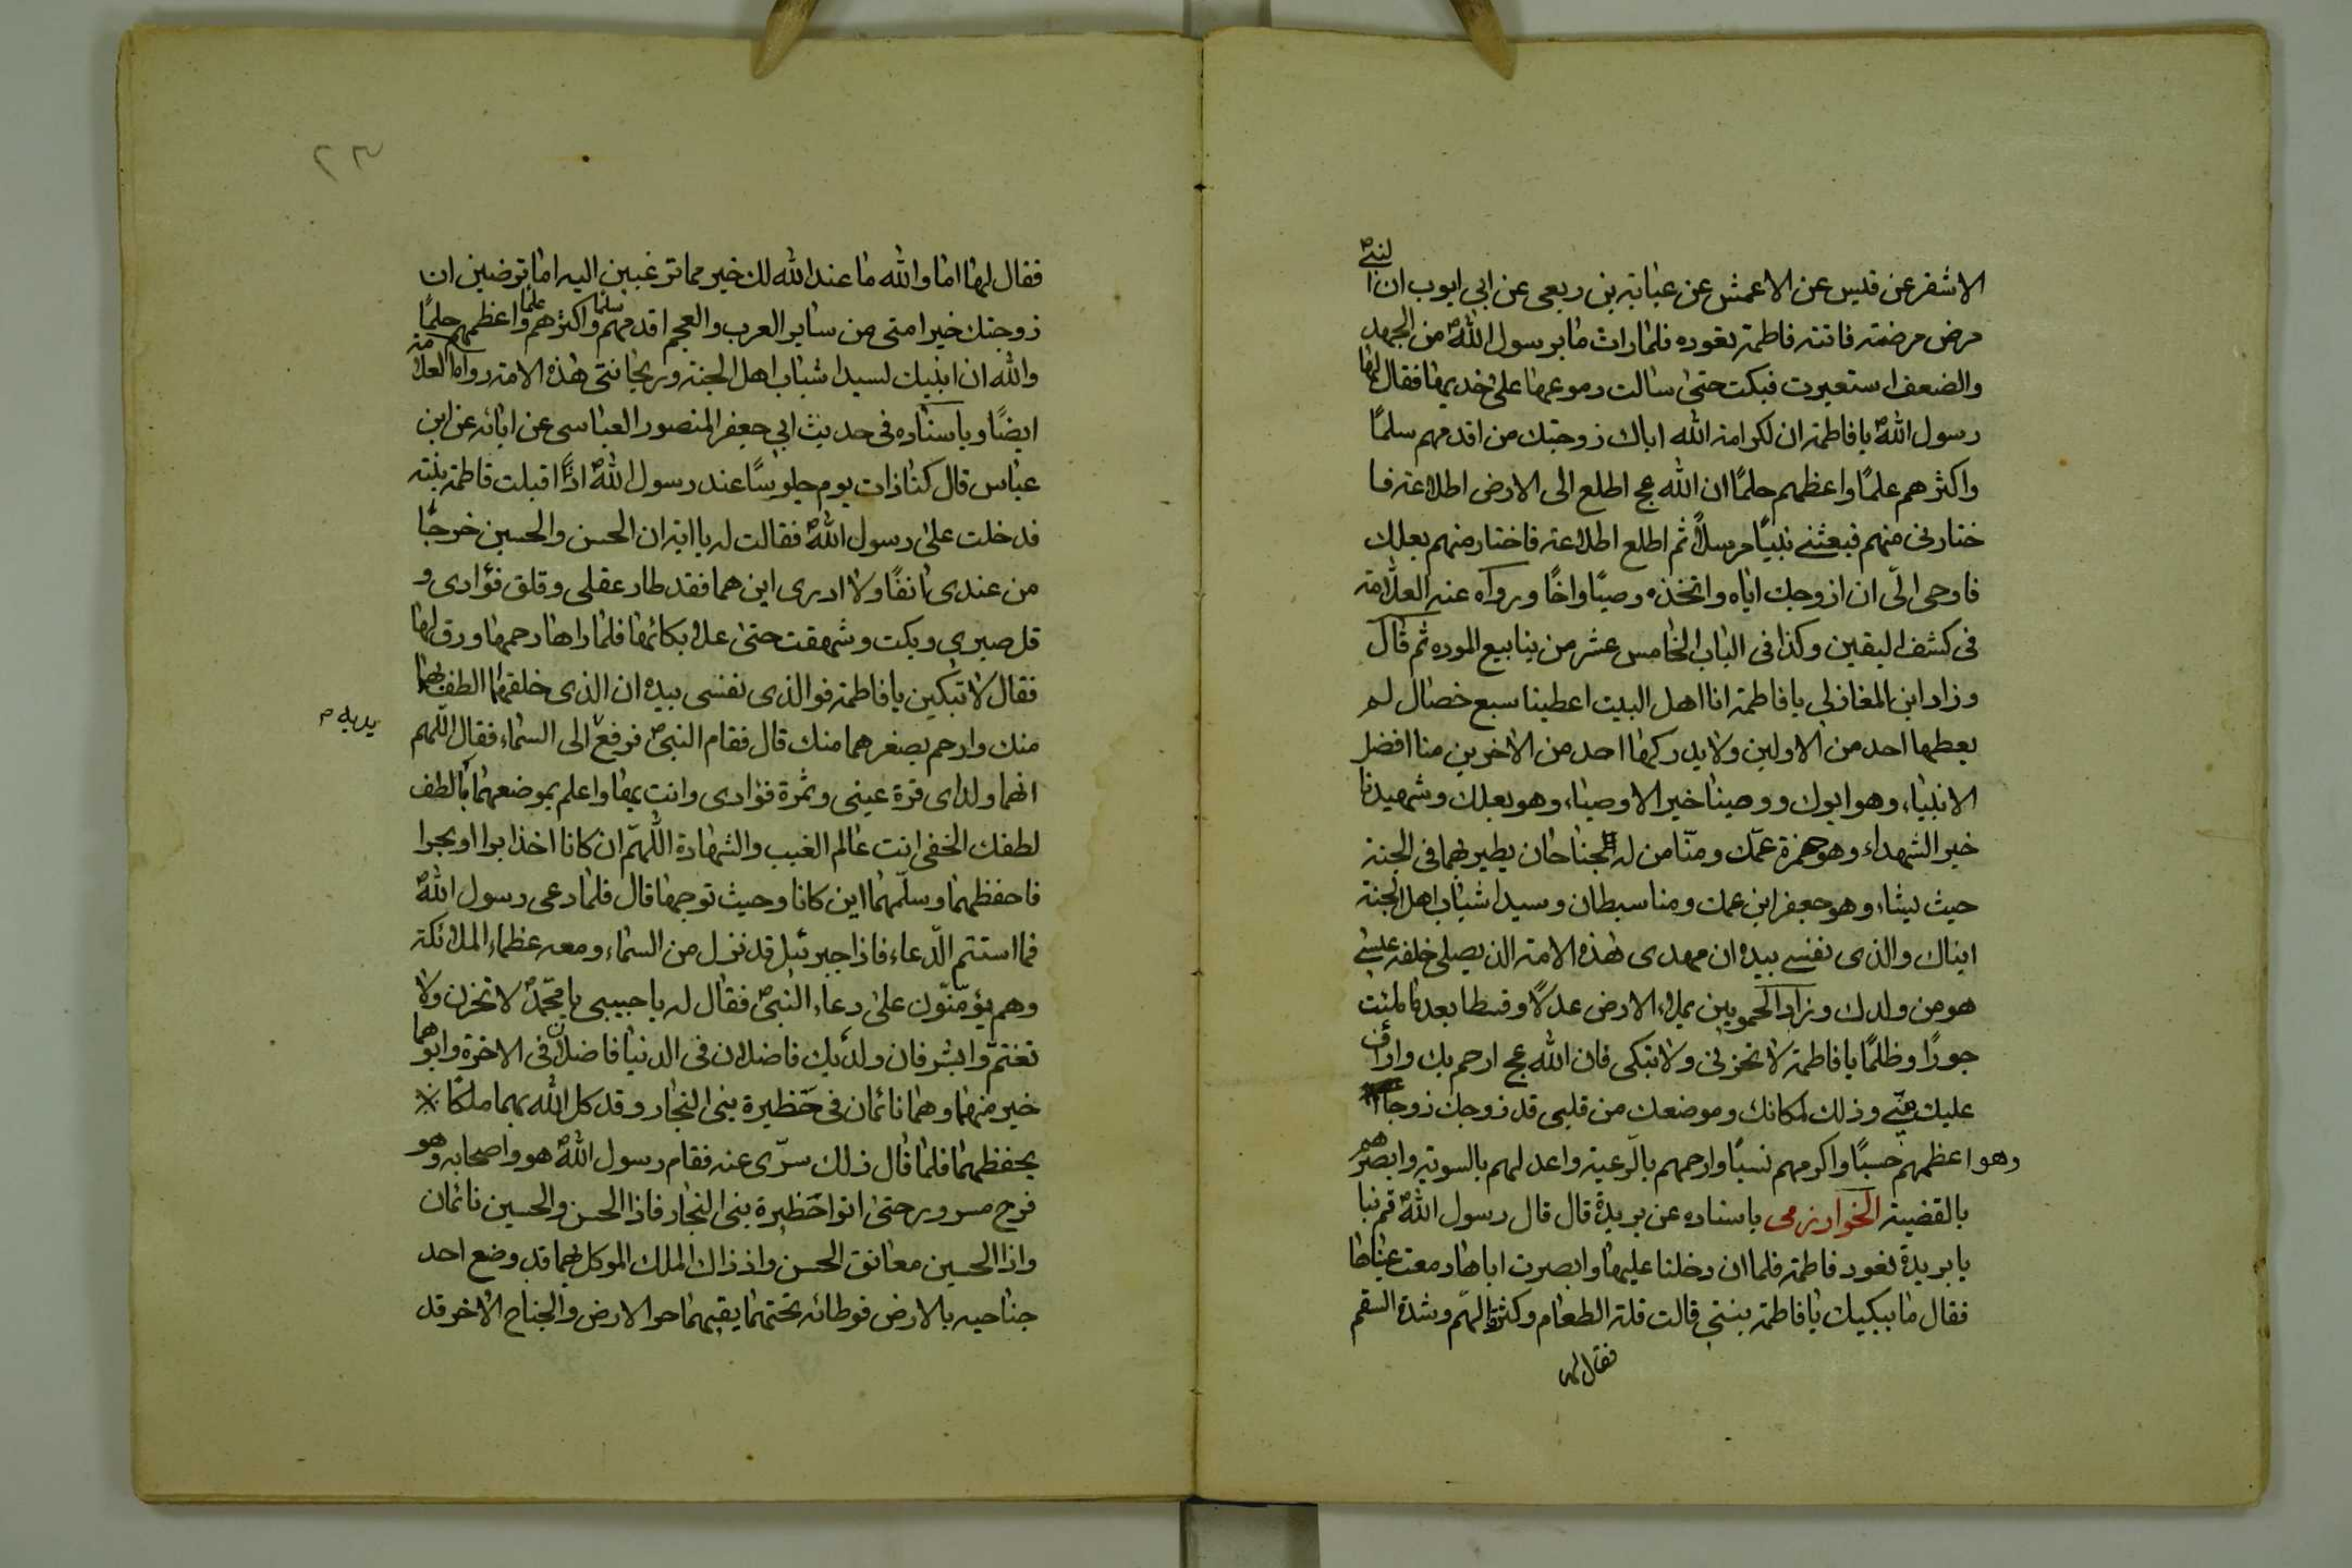 الاشقر عن قيس عن الاعمش عن عباية بن ربعى عن ابي ايوب ان النبيﷺ
مرض مرضته فاتته فاطمة تعوده فلما رات ما برسول اللهﷺ من الجهد
والضعف استعبرت فبكت حتى سالت دموعها على خديها فقال لها
رسول اللهﷺ يا فاطمة ان لكرامة الله اياك زوجتك من اقدمهم سلمًا
واكثرهم علمًا واعظمهم حلمًا ان الله عج اطلع الى الارض اطلاعة فا
ختارنى منهم فبعثنى نبيًا مرسلاً ثم اطلع اطلاعة فاختار منهم بعلك
فاوحى الىّ ان ازوجك اياه واتخذه وصيًا واخًا ورواه عنه العلامة
فى كشف اليقين وكذا فى الباب الخامس عشر من ينابيع الموده ثم قال
وزاد ابن المغازلى يا فاطمة انا اهل البيت اعطينا سبع خصال لم
يعطها احد من الاولين ولا يدركها احد من الاخرين منا افضل
الانبياء وهو ابوك ووصينا خير الاوصياء وهو بعلك وشهيدنا
خير الشهداء وهو حمزة عمّك ومنّا من له جناحان يطير بهما فى الجنة
حيث يشاء وهو جعفر ابن عمك ومنا سبطان وسيدا شباب اهل الجنة
ابناك والذى نفسى بيده ان مهدى هذه الامة الذ يصلى خلفه عيسى
هو من ولدك وزاد الحموينى يملاء الارض عدلاً وقسطا بعد ما ملئت
جورًا وظلمًا يا فاطمة لا تحزنى ولا تبكى فان الله عج ارحم بك واراف
عليك منّى وذلك لمكانك وموضعك من قلبى قد زوجك زوجا
وهو اعظمهم حسبًا واكرمهم نسبًا وارحمهم بالرّعية واعدلهم بالسوية وابصرهم
بالقضية الخوارزمى باسناده عن بريدة قال قال رسول اللهﷺ قم بنا
يا بريدة نعود فاطمة فلما ان دخلنا عليها وابصرت اباها دمعت عيناها
فقال ما يبكيك يا فاطمة بنتى قالت قلة الطعام وكثرة الهمّ وشدة السقم
فقال لها
٢٣
فقال لها اما والله ما عند الله لك خير مما ترغبين اليه اما ترضين ان
زوجتك خير امتى من ساير العرب والعجم اقدمهم سلمًا واكثرهم علمًا واعظمهم حلمًا
والله ان ابنيك لسيدا شباب اهل الجنة وريحانتى هذه الامة رواه العلامة
ايضًا وباسناده فى حديث ابى جعفر المنصور العباسى عن ابائه عن ابن
عباس قال كنا ذات يوم جلوسًا عند رسول اللهﷺ اذًا اقبلت فاطمة بنته
فدخلت على رسول اللهﷺ فقالت له يا ابة ان الحسن والحسين خرجا
من عندى انفًا ولا ادرى اين هما فقد طار عقلى وقلق فؤادى و
قل صبرى وبكت وشهقت حتى علا بكائها فلما راها رحمها ورق لها
فقال لا تبكين يا فاطمة فوالذى نفسى بيده ان الذى خلقهما الطف بهما
منك وارحم بصغرهما منك قال فقام النبىﷺ فرفع الى السماء فقال اللهم
يديه م
انهما ولداى قرة عينى وثمرة فؤادى وانت بهما واعلم بموضعهما بالطف
لطفك الخفى انت عالم الغيب والشهادة اللّهمّ ان كانا اخذا برا او بحرا
فاحفظهما وسلّمهما اين كانا وحيث توجها قال فلما دعى رسول اللهﷺ
فما استتم الدّعاء فاذا جبرئيل قد نزل من السماء ومعه عظماء الملائكة
وهم يؤمّنون على دعاء النبىﷺ فقال له يا حبيبى يا محمّدﷺ لا تحزن ولا
تغتمّ وابشر فان ولديك فاضلان فى الدنيا فاضلان فى الاخرة وابوهما
خير منهما وهما نائمان فى حظيرة بنى النجار وقد كل الله بهما ملكًا
يحفظهما فلما قال ذلك سرّى عنه فقام رسول اللهﷺ هو واصحابه وهو
فرح مسرور حتى اتوا حظيرة بنى النجار فاذا الحسن والحسين نائمان
واذا الحسين معانق الحسن واذ ذاك الملك الموكل بهما قد وضع احد
جناحيه بالارض فوطائه تحتهما يقيهما حر الارض والجناح الاخر قد